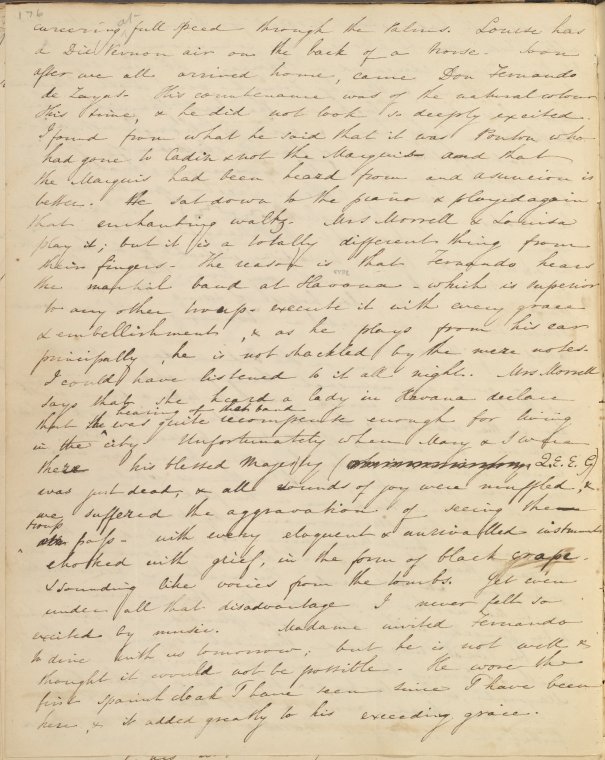 176
careering at full speed through the Palms. Louise has
a Die Vernon air on the back of a horse. Soon
after we all arrived home, came Don Fernando
de Zayas. His countenance was of the natural colour
this time, & he did not look so deeply excited.
I found from what he said that it was Ponton who
had gone to Cadiz & not the Marquis and that
the Marquis had been heard from and asuncion is
better. He sat down to the piano & played again
that enchanting waltz. Mrs Morrell & Louisa
play it; but it is a totally different thing from
their fingers. The reason is that Fernando hears
the martial band at Havana - which is superior
to any other troop - execute it with every grace
& embellishment, & as he plays from his ear
principally, he is not shackled by the mere notes.
I could have listened to it all night. Mrs. Morrell
says that she heard a lady in Havana declare
that hearing of that band was quite recompense enough for living
in the city. Unfortunately when Mary & I were
there his blessed Majesty (Q.E.E.G)
was just dead, & all sounds of joy were muffled, &
we suffered the aggravation of seeing the
troup pass - with every eloquent & unrivalled instrument
choked with grief, in the form of black crape.
& sounding like voices from the tombs. Yet even
under all that disadvantage I never felt so
excited by music. Madame invited Fernando
to dine with us tomorrow; but he is not well &
thought it would not be possible. He wore the
first Spanish cloak I have seen since I have been
here, & it added greatly to his exceeding grace.